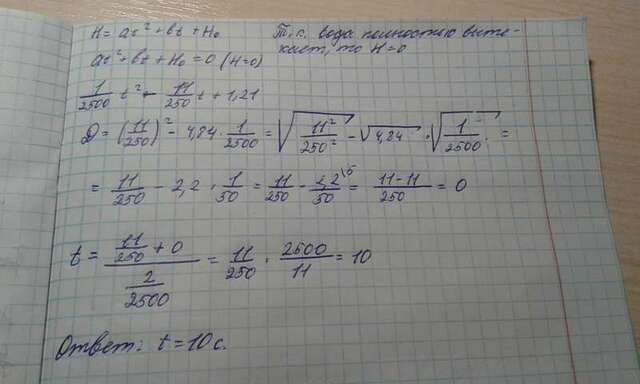 H = at² + bt + H₀
Т.к. вода полностью выте-
кает, то H=0
at² + bt + H₀ = 0 (H=0)
1/2500 t² - 11/250 t + 1,21
D = (11/250)² - 4,84 · 1/2500 = √(11²/250²) - √4,84 · √(1/2500) =
= 11/250 - 2,2 · 1/50 = 11/250 - 2,2\5/50 = (11-11)/250 = 0
t = (11/250 + 0)/(2/2500) = 11/250 · 2500/11 = 10
Ответ: t = 10 с.